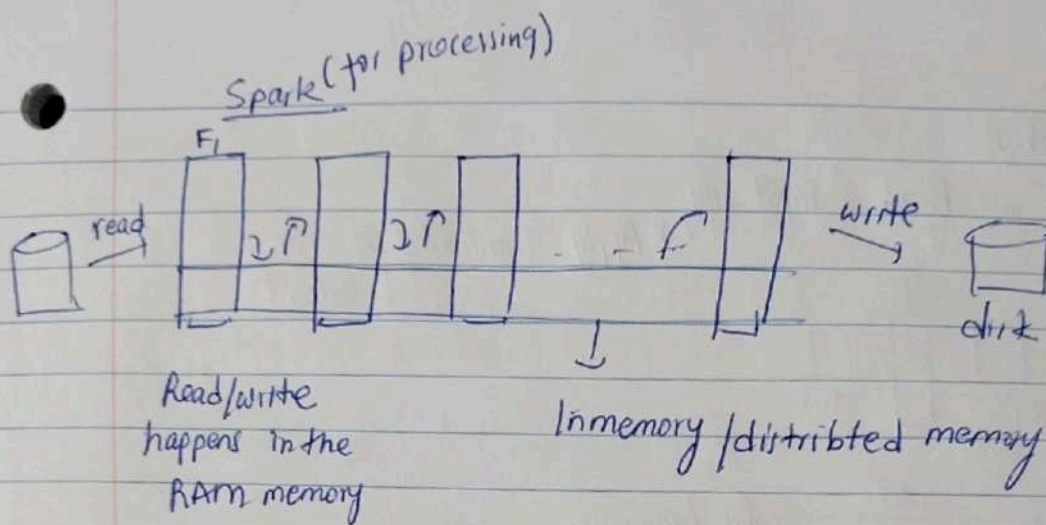 Spark (for processing)
F1
read
write
disk
Read/write
happens in the
RAM memory
Inmemory / distribted memory